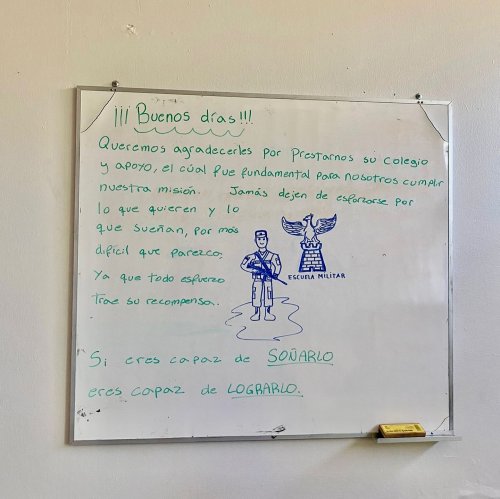 ¡¡¡ Buenos días!!!
Queremos agradecerles por prestarnos su colegio
y apoyo, el cúal fue fundamental para nosotros cumplir
nuestra misión. Jamás dejen de esforzarse por
lo que quieren y lo
que sueñan, por más
difícil que parezca,
Ya que todo esfuerzo
trae su recompensa.
ESCUELA MILITAR
Si eres capaz de SOÑARLO
eres capaz de LOGRARLO.